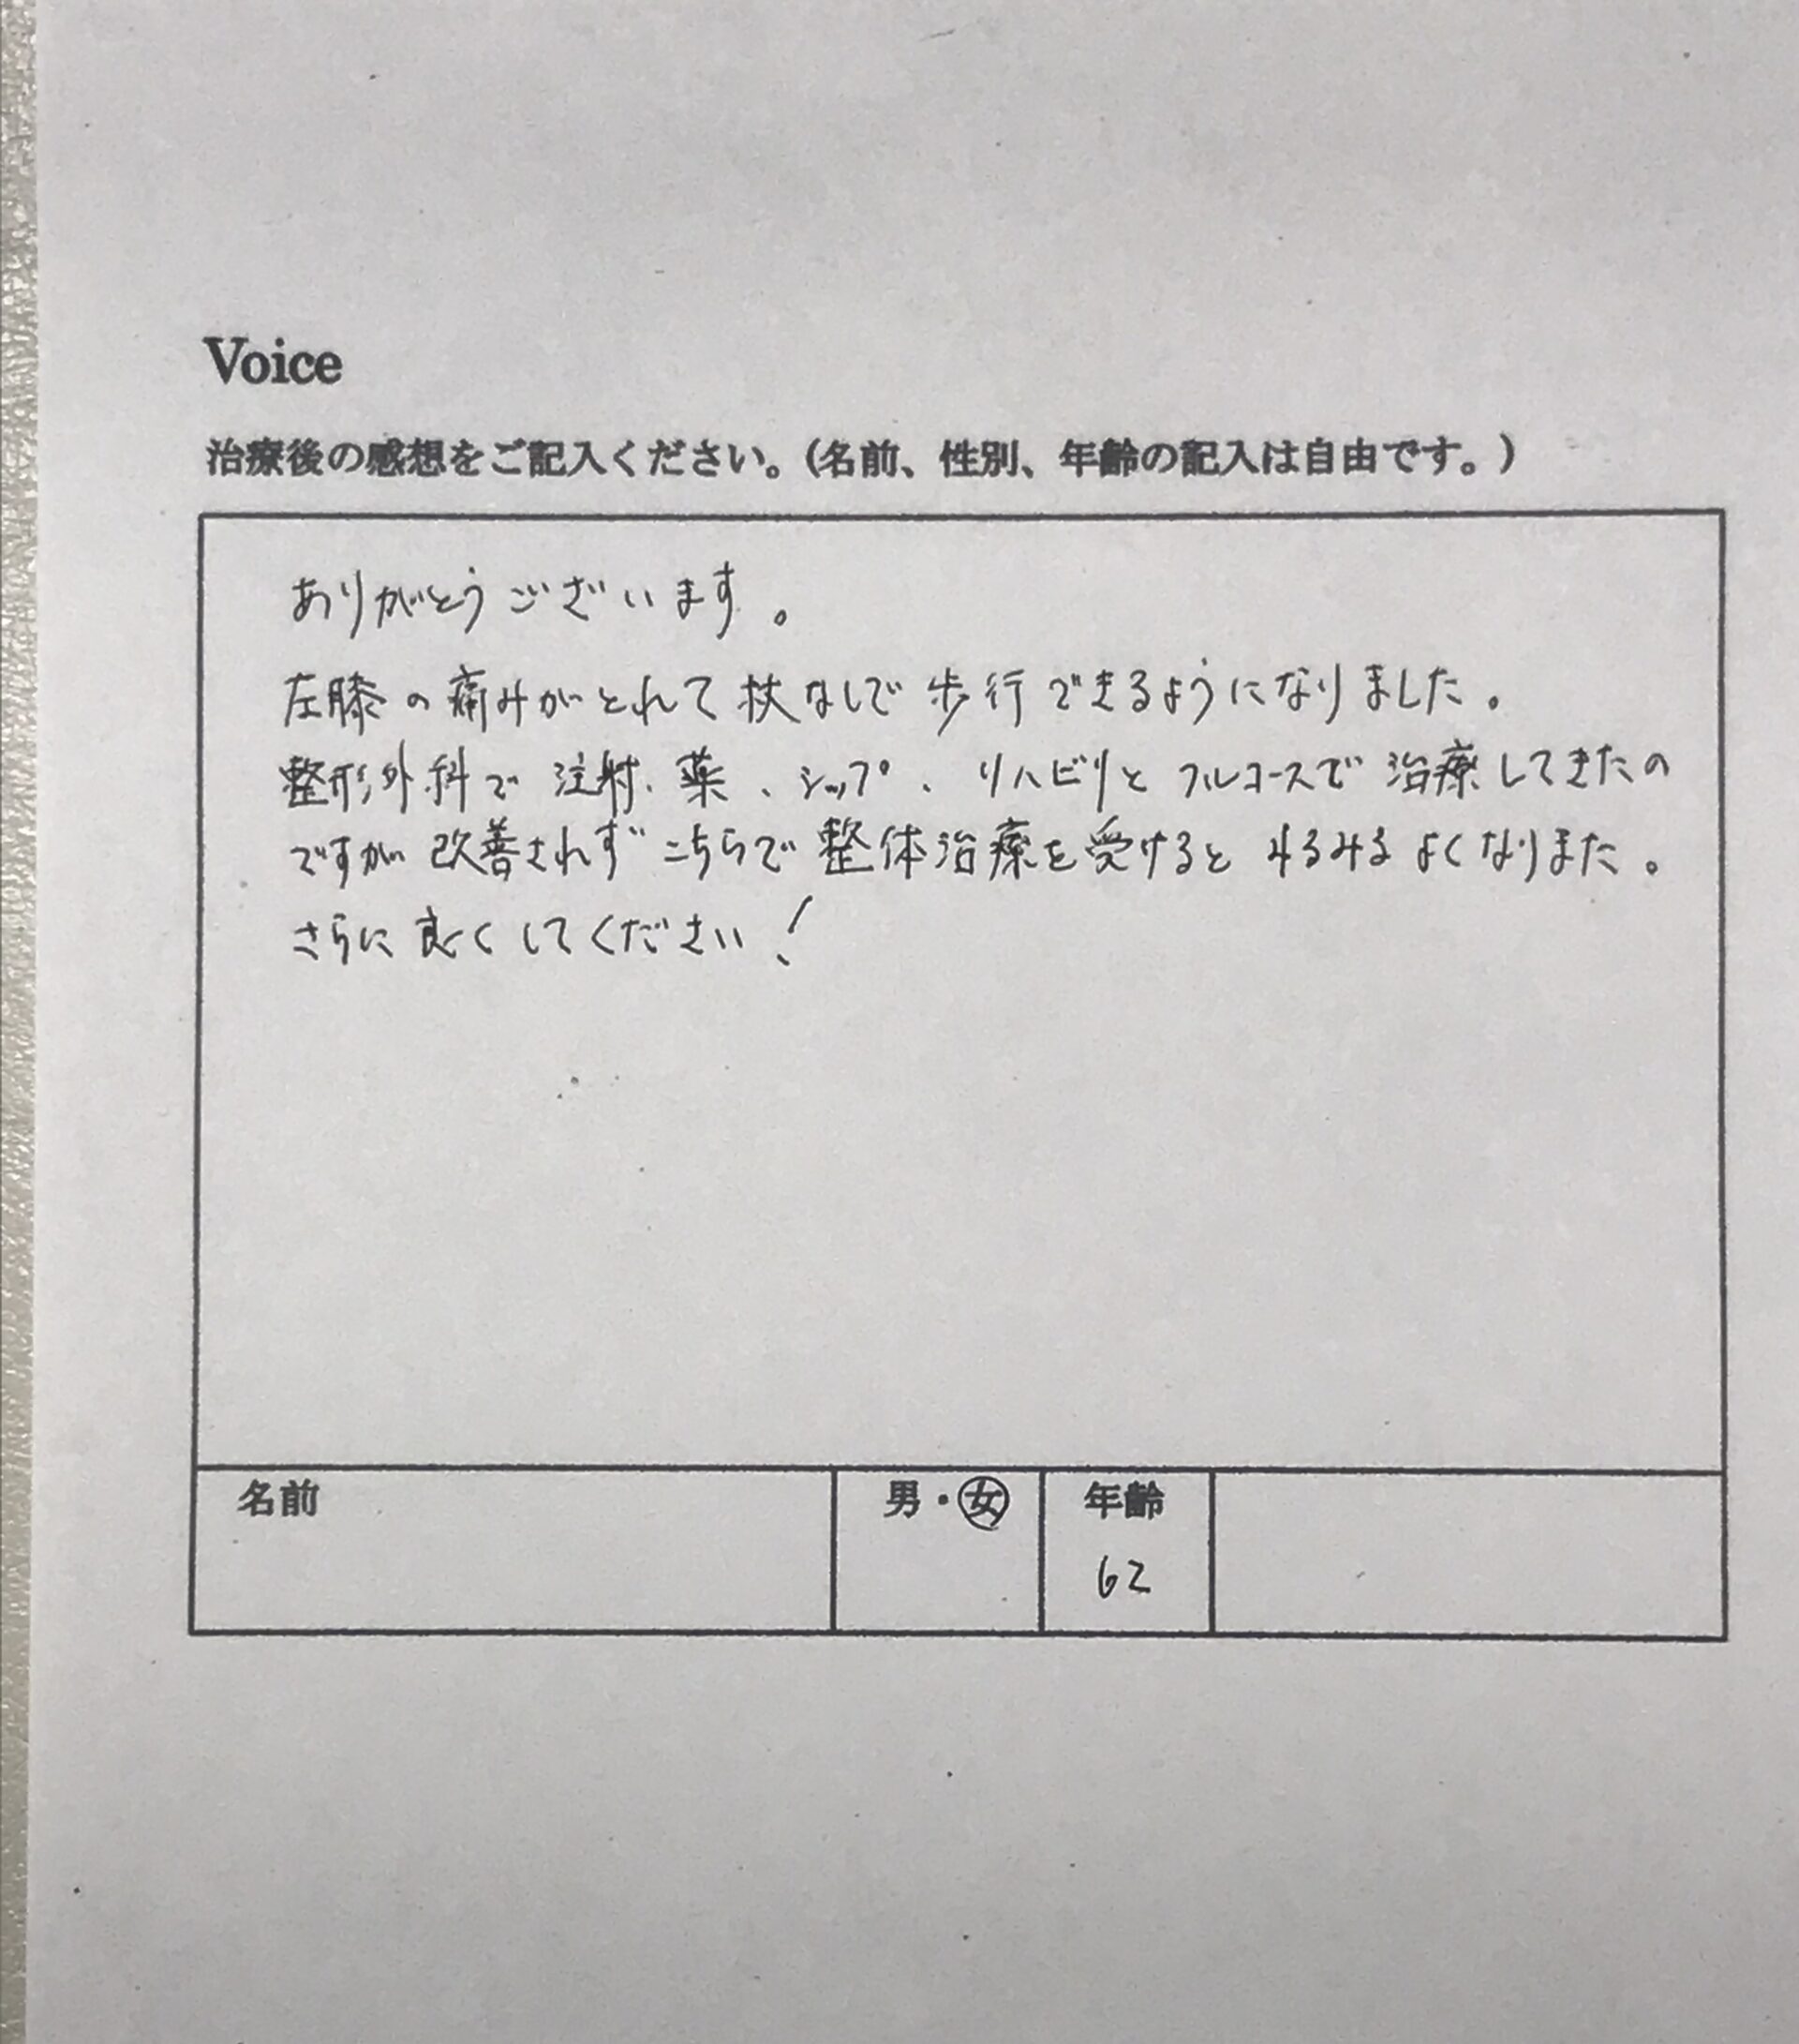 Voice
治療後の感想をご記入ください。（名前、性別、年齢の記入は自由です。）
ありがとうございます。
左膝の痛みがとれて杖なしで歩行できるようになりました。
整形外科で注射、薬、シップ、リハビリとフルコースで治療してきたの
ですが改善されず こちらで整体治療を受けると みるみるよくなりまた。
さらに良くしてください!
名前 男・女 年齢
62